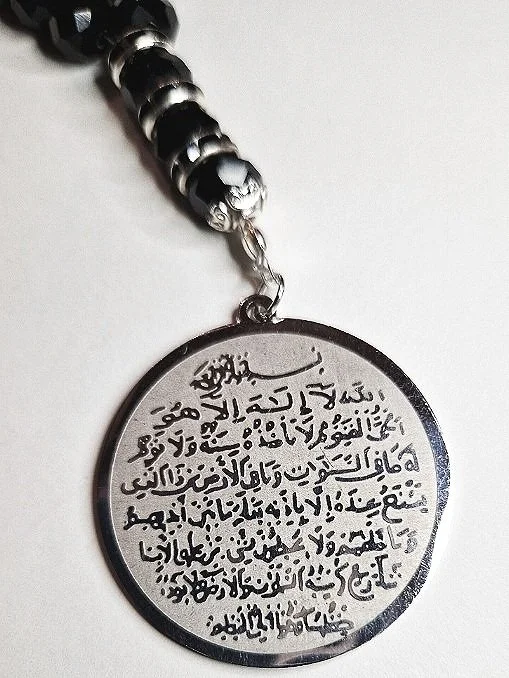 بسم الله الرحمن الرحيم
الله لا إله إلا هو
الحي القيوم لا تأخذه سنة ولا نوم
له ما في السموات وما في الأرض من ذا الذي
يشفع عنده إلا بإذنه يعلم ما بين أيديهم
وما خلفهم ولا يحيطون بشئ من علمه إلا بما
شاء وسع كرسيه السموات والأرض ولا يؤده
حفظهما وهو العلي العظيم